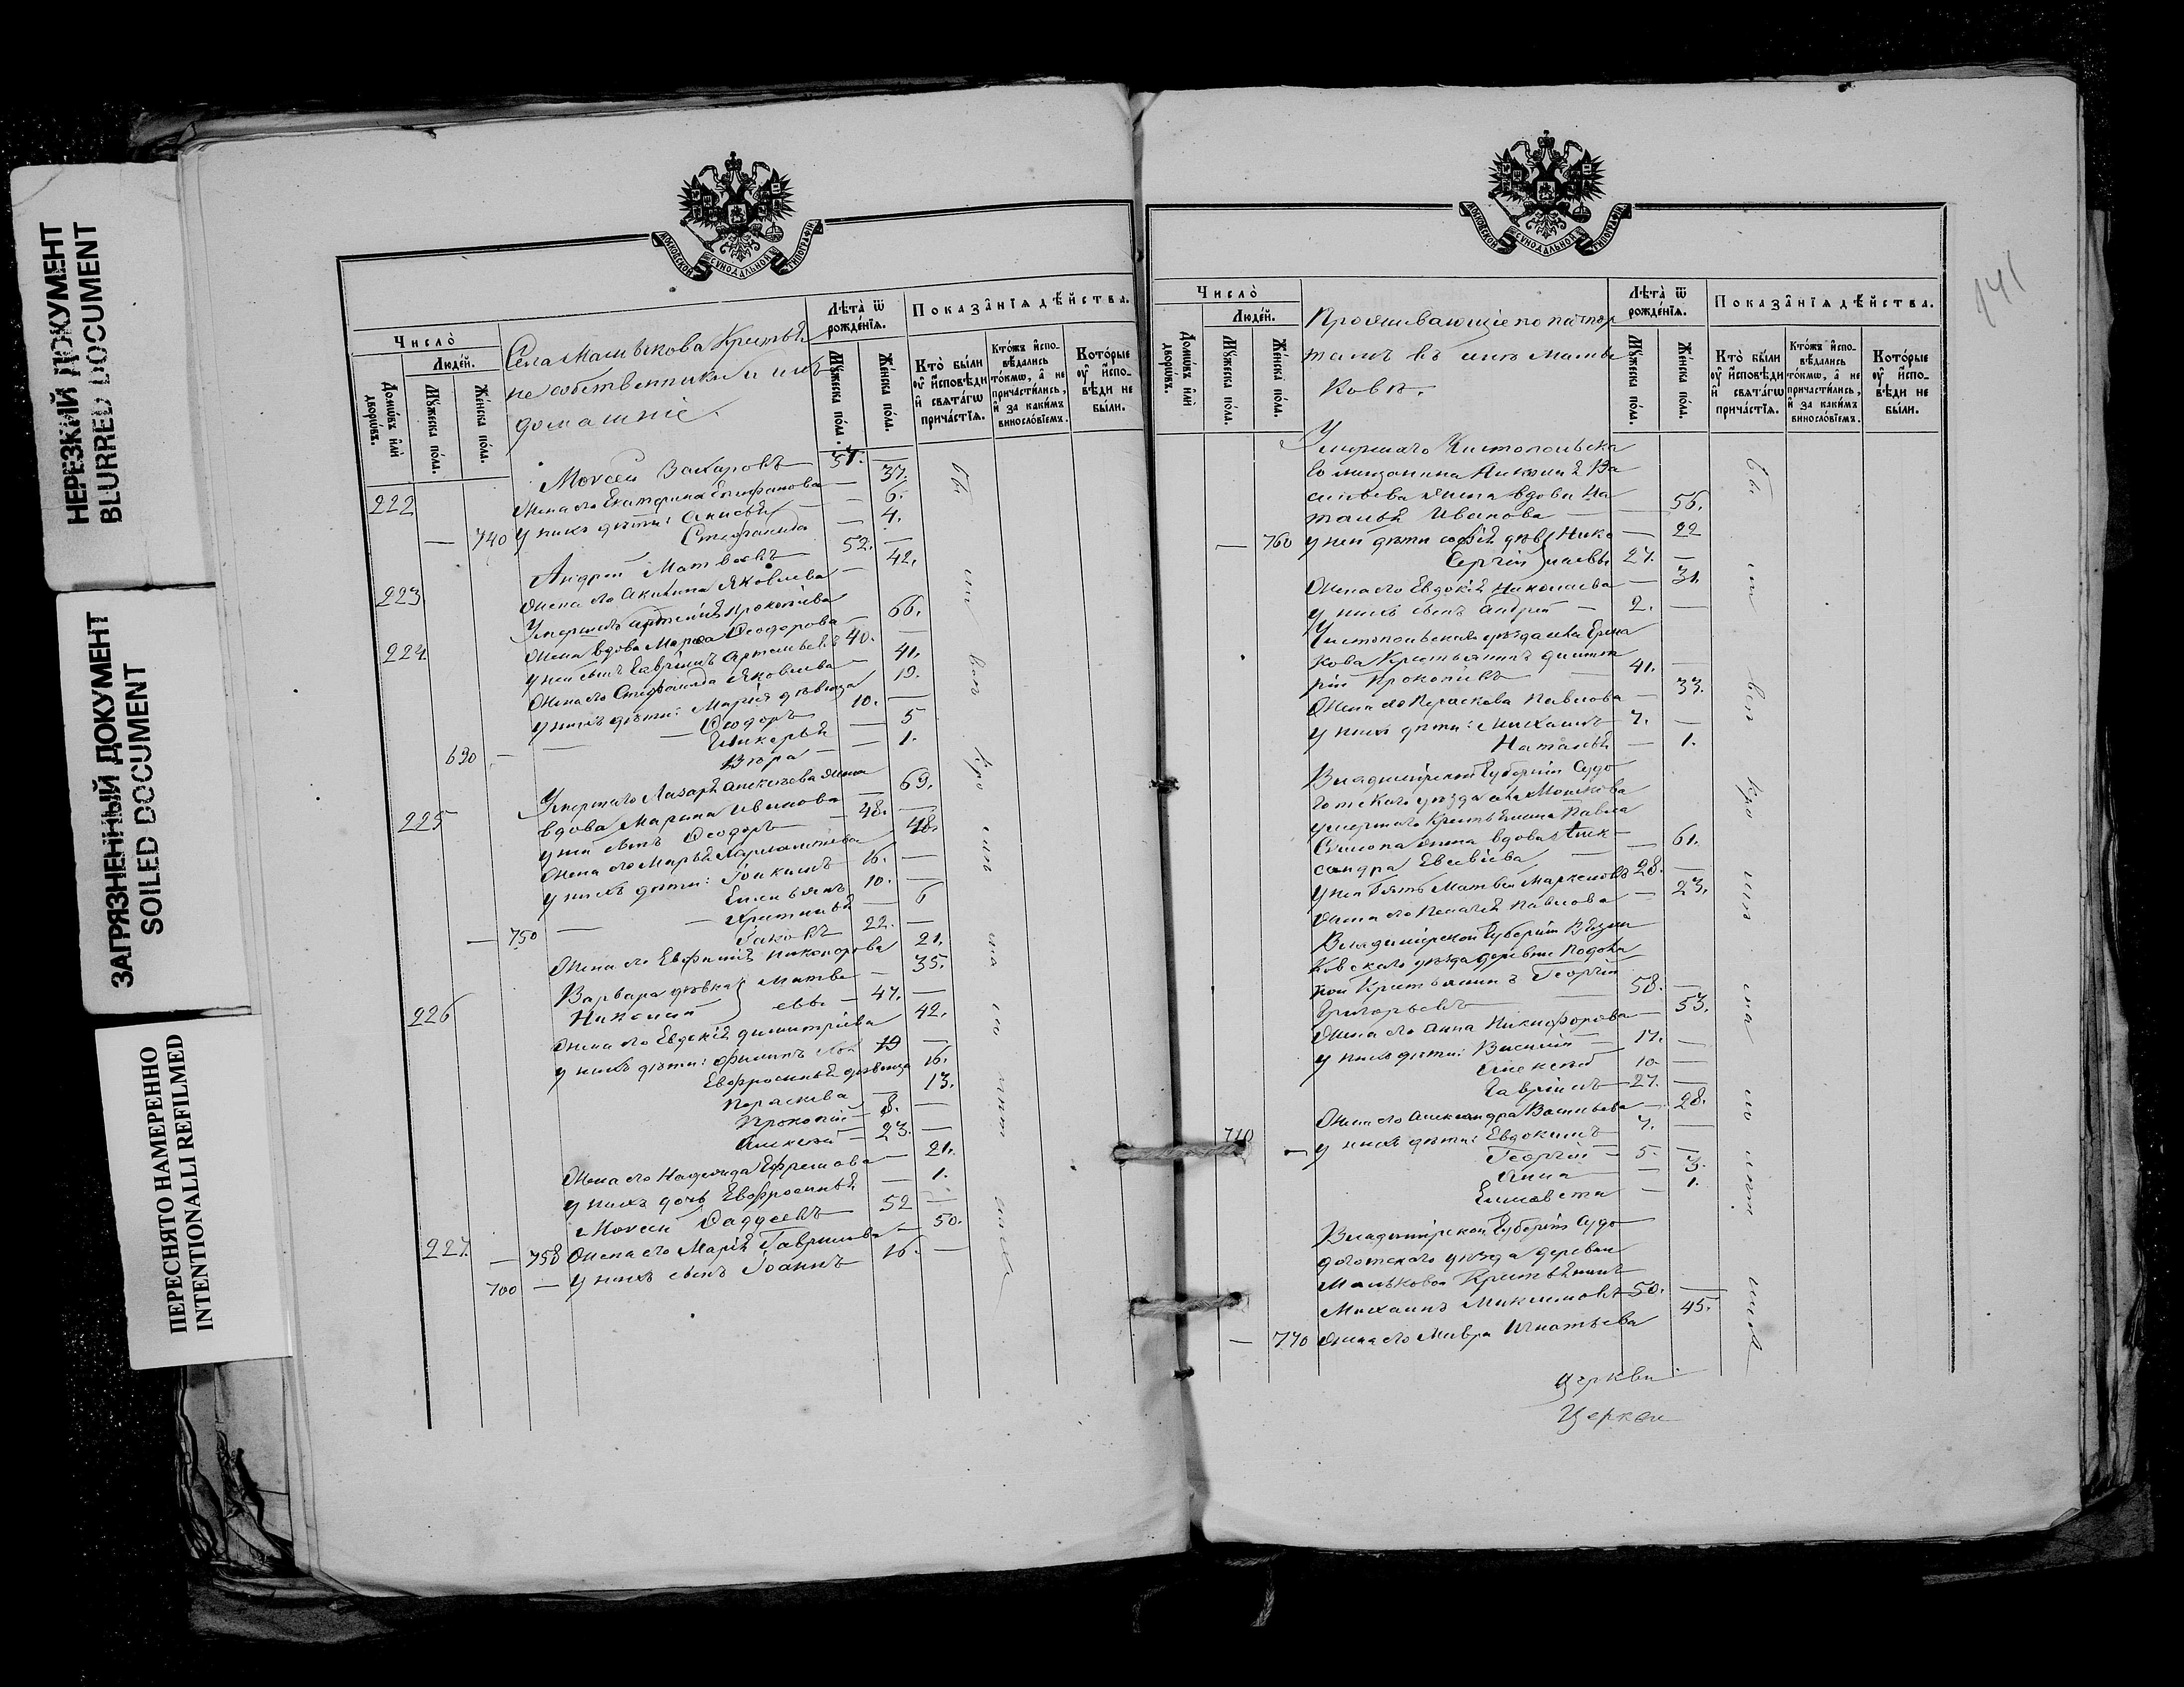 НЕРЕЗКИЙ ДОКУМЕНТ
BLURRED DOCUMENT
ЗАГРЯЗНЕННЫЙ ДОКУМЕНТ
SOILED DOCUMENT
ПЕРЕСНЯТО НАМЕРЕННО
INTENTIONALLI REFILMED
МОСКОВСКОЙ СУНОДАЛЬНОЙ ТИПОГРАФІИ
Число̀
Людей.
Домѡвъ и҆лѝ дворѡвъ.
Мꙋжеска пола.
Женска пола.
Села Мамыкова Крестья
не собственники и ихъ
домашніе.
Лѣта̀ ѿ рожденїѧ.
Мꙋжеска пола.
Женска пола.
Показанїѧ дѣйства.
Кто̀ были оу҆ и҆сповѣди и҆ свѧтагѡ причастїѧ.
Ктожъ и҆сповѣдались токмѡ, а҆ не причастились, и҆ за какимъ винословїемъ.
Которые оу҆ и҆сповѣди не были.
222 Моѵсей Захаровъ 57. —
Жена его Екатерина Епифанова — 37.
у нихъ дѣти: Анисья — 6.
— 740 Стефанида — 4.
223 Андрей Матвѣевъ 52. —
Жена его Акилина Яковлева — 42.
224 Умершаго Артемія Прокопіева
Жена вдова Марѳа Ѳеодорова — 66.
у ней сынъ Гавріилъ Артемьевъ 40. —
Жена его Стефанида Яковлева — 41.
у нихъ дѣти: Марія дѣвица 19.
— Ѳеодоръ 10. —
690 — Гликерья — 5
Вѣра — 1.
225 Умершаго Лазаря Алексѣева жена
вдова Марина Иванова — 69.
у ней сынъ Ѳеодоръ — 48. —
Жена его Марья Харлампіева 48.
у нихъ дѣти: Іоакимъ 16. —
Емельянъ 10. —
— 750 — Христинья — 6
Іаковъ 22. —
Жена его Евфимія Никанорова 21.
226 Варвара дѣвка Матве 35.
Николай евы — 47. —
Жена его Евдокія Димитріева 42.
у нихъ дѣти: Филиппъ 19 —
Евфросинья дѣвица 16.
Параскева 13.
Прокопій 8. —
Алексѣй 23. —
Жена его Надежда Ефремова 21.
у нихъ дочь Евфросинья — 1.
227. Моѵсей Ѳаддеевъ 52 —
— 758 Жена его Марія Гаврилова — 50.
700 — у нихъ сынъ Іоаннъ 16. —
141
МОСКОВСКОЙ СУНОДАЛЬНОЙ ТИПОГРАФІИ
Число̀
Людей.
Домѡвъ и҆лѝ дворѡвъ.
Мꙋжеска пола.
Женска пола.
Проживающіе по паспор
тамъ въ селѣ Мамы
ковѣ.
Лѣта̀ ѿ рожденїѧ.
Мꙋжеска пола.
Женска пола.
Показанїѧ дѣйства.
Кто̀ были оу҆ и҆сповѣди и҆ свѧтагѡ причастїѧ.
Ктожъ и҆сповѣдались токмѡ, а҆ не причастились, и҆ за какимъ винословїемъ.
Которые оу҆ и҆сповѣди не были.
Умершаго Чистопольска
го мещанина Николая Ва
сильева жена вдова На
талья Иванова — 56.
— 760 у ней дѣти Софія дѣв. Нико — 22
Сергій лаевы 27. —
Жена его Евдокія Николаева — 31.
у нихъ сынъ Андрей — 2. —
Чистопольскаго уѣзда села Ерна
кова Крестьянинъ Димит
рій Прокопіевъ 41. —
Жена его Параскева Павлова — 33.
у нихъ дѣти: Михаилъ 7. —
Наталья — 1.
Владимірской Губерніи Судо
готскаго уѣзда села Мошкова
умершаго Крестьянина Павла
жена вдова Алек—
сандра Евсевіева — 61.
у ней зять Матвей 28. —
Жена его Пелагія Павлова — 23.
Владимірской Губерніи Вязни
ковскаго уѣзда деревни
Крестьянинъ Георгій
Григорьевъ 58. —
Жена его Анна Никифорова 53.
у нихъ дѣти: Василій 17. —
Алексѣй 10 —
Гавріилъ 27. —
Жена его Александра Васильева — 28.
710 — у нихъ дѣти: Евдокимъ 7. —
Георгій 5. —
Анна — 3.
Елисавета — 1.
Владимірской Губерніи Судо
готскаго уѣзда деревни
Крестьянинъ
Михаилъ Максимовъ 50. —
— 770 Жена его Мавра Игнатьева 45.
Церкви
Церкви